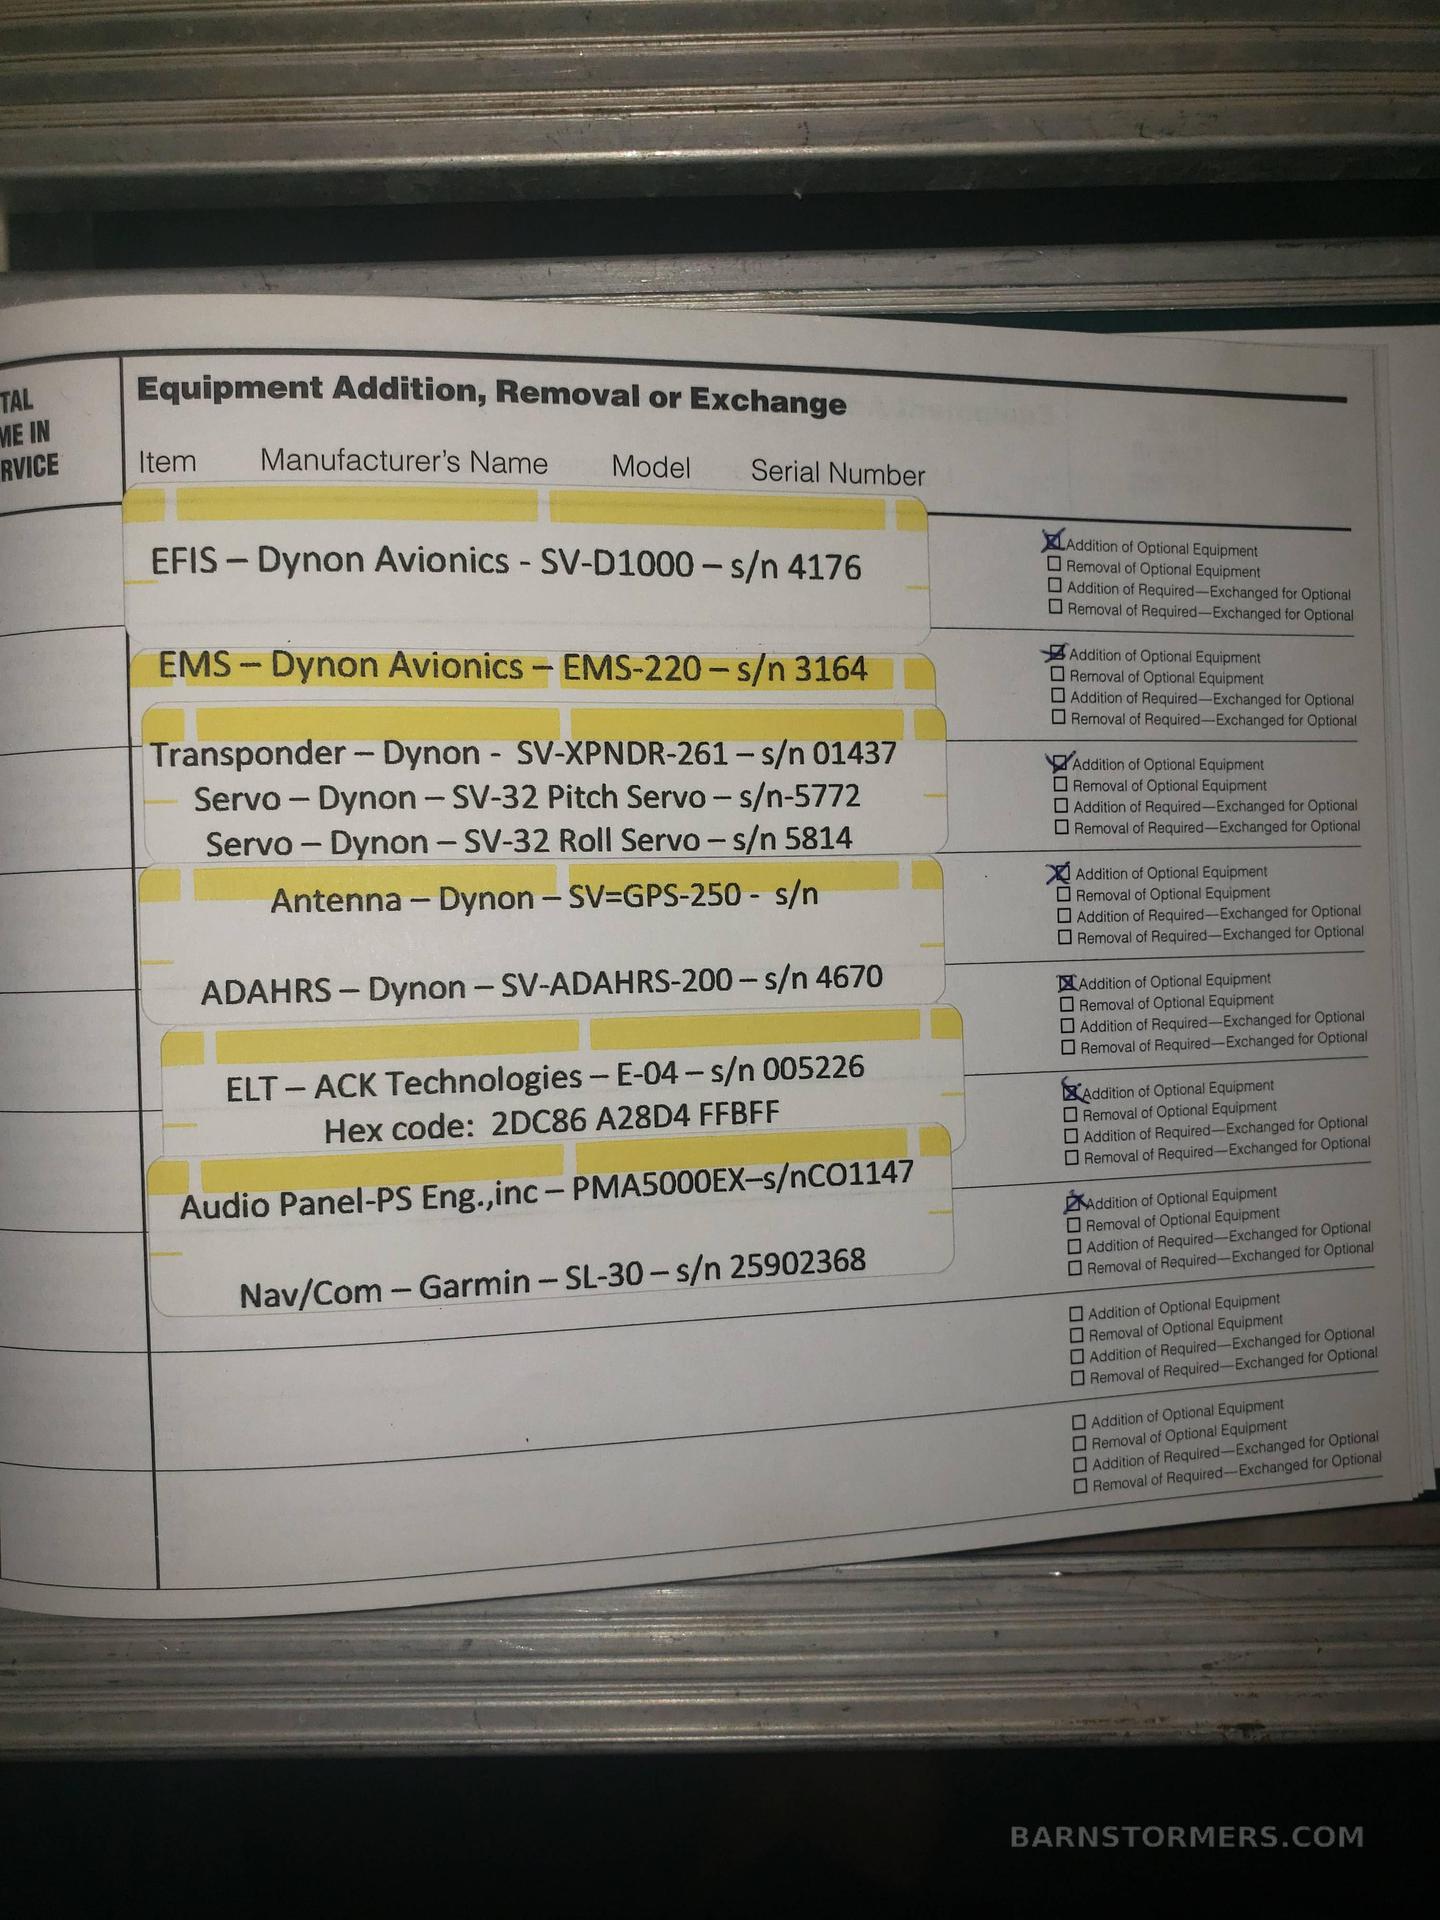 TAL
ME IN
RVICE
Equipment Addition, Removal or Exchange
Item Manufacturer's Name Model Serial Number
EFIS – Dynon Avionics - SV-D1000 – s/n 4176
☒ Addition of Optional Equipment
☐ Removal of Optional Equipment
☐ Addition of Required—Exchanged for Optional
☐ Removal of Required—Exchanged for Optional
EMS – Dynon Avionics – EMS-220 – s/n 3164
☒ Addition of Optional Equipment
☐ Removal of Optional Equipment
☐ Addition of Required—Exchanged for Optional
☐ Removal of Required—Exchanged for Optional
Transponder – Dynon - SV-XPNDR-261 – s/n 01437
Servo – Dynon – SV-32 Pitch Servo – s/n-5772
Servo – Dynon – SV-32 Roll Servo – s/n 5814
☒ Addition of Optional Equipment
☐ Removal of Optional Equipment
☐ Addition of Required—Exchanged for Optional
☐ Removal of Required—Exchanged for Optional
Antenna – Dynon – SV=GPS-250 - s/n
☒ Addition of Optional Equipment
☐ Removal of Optional Equipment
☐ Addition of Required—Exchanged for Optional
☐ Removal of Required—Exchanged for Optional
ADAHRS – Dynon – SV-ADAHRS-200 – s/n 4670
☒ Addition of Optional Equipment
☐ Removal of Optional Equipment
☐ Addition of Required—Exchanged for Optional
☐ Removal of Required—Exchanged for Optional
ELT – ACK Technologies – E-04 – s/n 005226
Hex code: 2DC86 A28D4 FFBFF
☒ Addition of Optional Equipment
☐ Removal of Optional Equipment
☐ Addition of Required—Exchanged for Optional
☐ Removal of Required—Exchanged for Optional
Audio Panel-PS Eng.,inc – PMA5000EX–s/nCO1147
Nav/Com – Garmin – SL-30 – s/n 25902368
☒ Addition of Optional Equipment
☐ Removal of Optional Equipment
☐ Addition of Required—Exchanged for Optional
☐ Removal of Required—Exchanged for Optional
☐ Addition of Optional Equipment
☐ Removal of Optional Equipment
☐ Addition of Required—Exchanged for Optional
☐ Removal of Required—Exchanged for Optional
☐ Addition of Optional Equipment
☐ Removal of Optional Equipment
☐ Addition of Required—Exchanged for Optional
☐ Removal of Required—Exchanged for Optional
BARNSTORMERS.COM